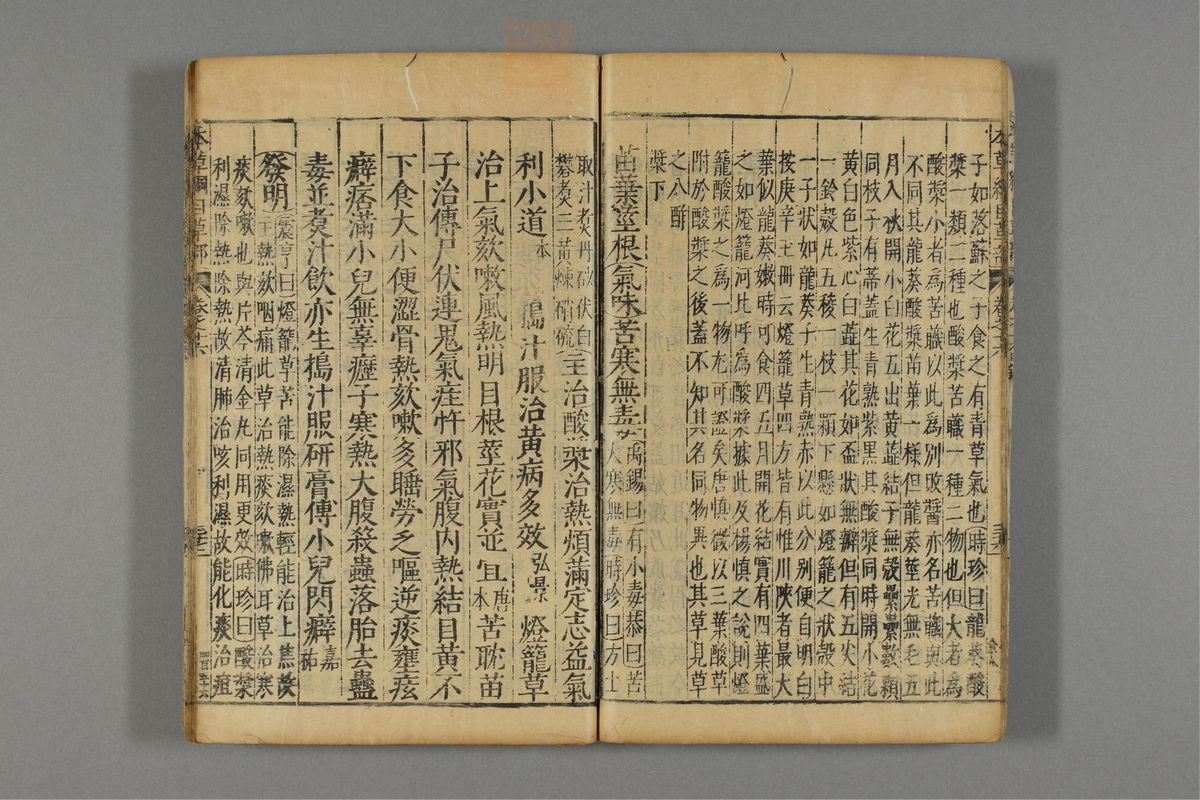 子如落蘇之子食之有青草氣也時珍曰龍葵酸
漿一類二種也酸漿苦蘵一種二物也但大者為
酸漿小者為苦蘵以此為別敗醬亦名苦蘵與此
不同其龍葵酸漿苗葉一樣但龍葵莖光無毛五
月入秋開小白花五出黃蕋結子無殼纍纍數顆
同枝子有蒂蓋生青熟紫黑其酸漿同時開小花
黃白色紫心白蕋其花如盃狀無瓣但有五尖結
一鈴殼凡五稜一枝一顆下懸如燈籠之狀殼中
一子狀如龍葵子生青熟赤以此分別便自明白
按庚辛玉冊云燈籠草四方皆有惟川陝者最大
葉似龍葵嫩時可食四五月開花結實有四葉盛
之如燈籠河北呼為酸漿據此及楊慎之說則燈
籠酸漿之為一物尤可證矣唐慎微以三葉酸草
附於酸漿之後蓋不知其名同物異也其草見草
之八酢
漿下
苗葉莖根氣味苦寒無毒禹錫曰有小毒恭曰苦
大寒無毒時珍曰方士
取汁煮丹砂伏白
礬煮三黃煉硝硫主治酸漿治熱煩滿定志益氣
利小道本 搗汁服治黃病多效弘景 燈籠草
治上氣欬嗽風熱明目根莖花實並宜唐本苦耽苗
子治傳尸伏連鬼氣疰忤邪氣腹內熱結目黃不
下食大小便澀骨熱欬嗽多睡勞乏嘔逆痰壅痃
癖痞滿小兒無辜癧子寒熱大腹殺蟲落胎去蠱
毒並煮汁飲亦生搗汁服研膏傅小兒閃癖嘉祐
發明震亨曰燈籠草苦能除濕熱輕能治上焦故
主熱欬咽痛此草治熱痰欬嗽佛耳草治寒
痰欬嗽也與片芩清金丸同用更效時珍曰酸漿
利濕除熱除熱故清肺治咳利濕故能化痰治疸
本草綱目草部 卷之十六